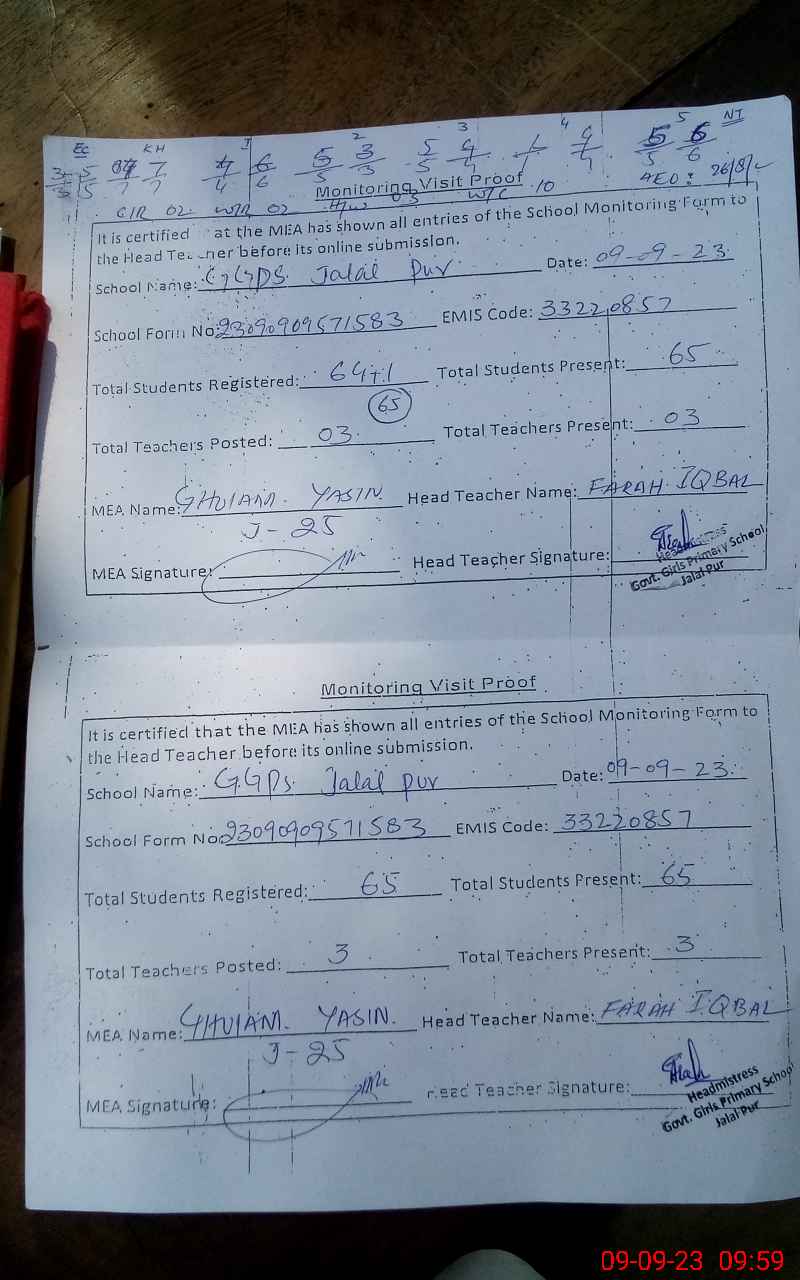 EC KH 1 2 3 4 5 NT
C/R 02 W/R 02 03 W/C 10 AEO: 26/8/
Monitoring Visit Proof
It is certified at the MEA has shown all entries of the School Monitoring Form to
the Head before its online submission.
School Name: GGPS Jalal Pur Date: 09-09-23
School Form No: 2309090571583 EMIS Code: 33220857
Total Students Registered: 64+1 Total Students Present: 65
65
Total Teachers Posted: 03 Total Teachers Present: 03
MEA Name: GHULAM YASIN Head Teacher Name: FARAH IQBAL
J-25
MEA Signature: Head Teacher Signature:
Headmistress
Govt. Girls Primary School
Jalal Pur
Monitoring Visit Proof
It is certified that the MEA has shown all entries of the School Monitoring Form to
the Head Teacher before its online submission.
School Name: GGPS Jalal Pur Date: 09-09-23
School Form No: 2309090571583 EMIS Code: 33220857
Total Students Registered: 65 Total Students Present: 65
Total Teachers Posted: 3 Total Teachers Present: 3
MEA Name: GHULAM YASIN. Head Teacher Name: FARAH IQBAL
J-25
MEA Signature: Head Teacher Signature:
Headmistress
Govt. Girls Primary School
Jalal Pur
09-09-23 09:59